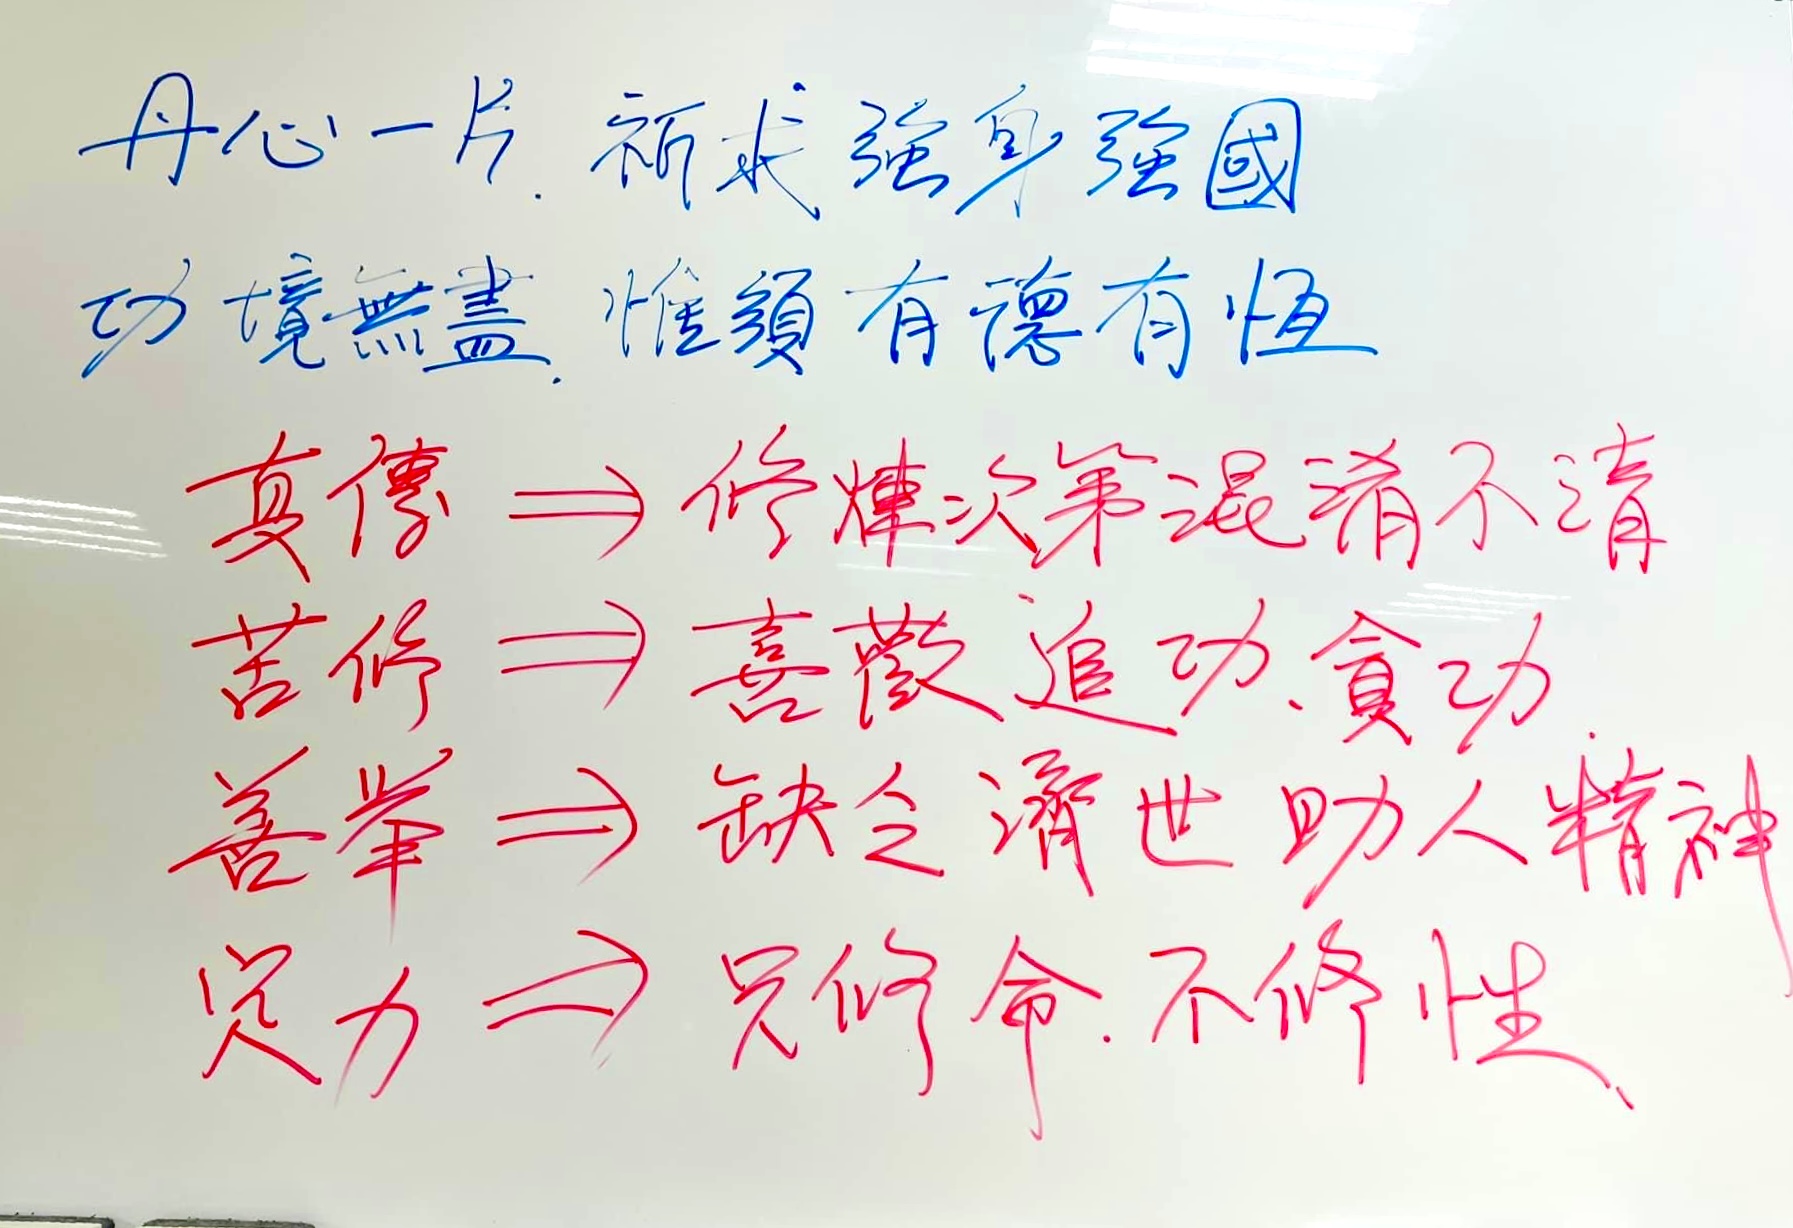 丹心一片.祈求強身強國
功境無盡.惟須有德有恆
真傳⇒修煉次第混淆不清
苦修⇒喜歡追功、貪功.
善举⇒缺乏濟世助人精神
定力⇒只修命.不修性、